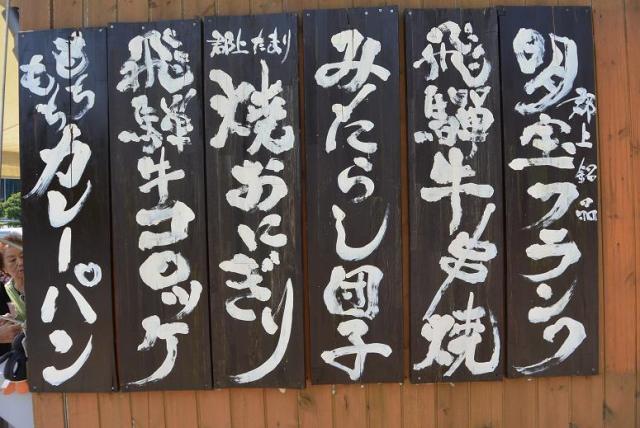 明宝フランク
郡上銘品
飛騨牛串焼
みたらし団子
郡上たまり
焼おにぎり
飛騨牛コロッケ
もちもちカレーパン